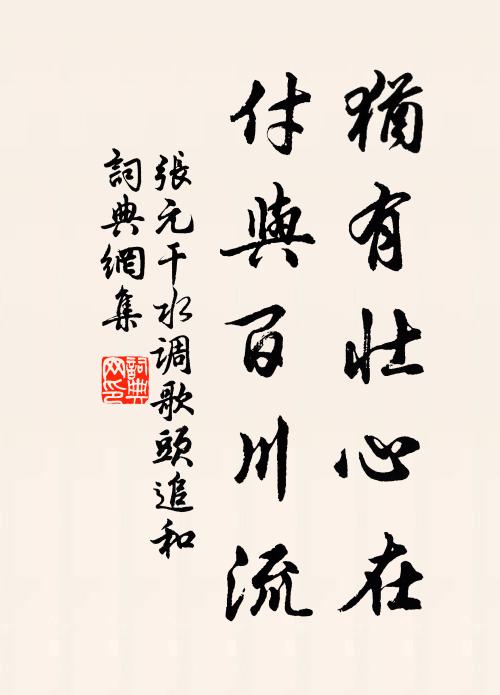 猶有壯心在
付與百川流
張元干水调歌頭追和
詞典網集
詞典网印